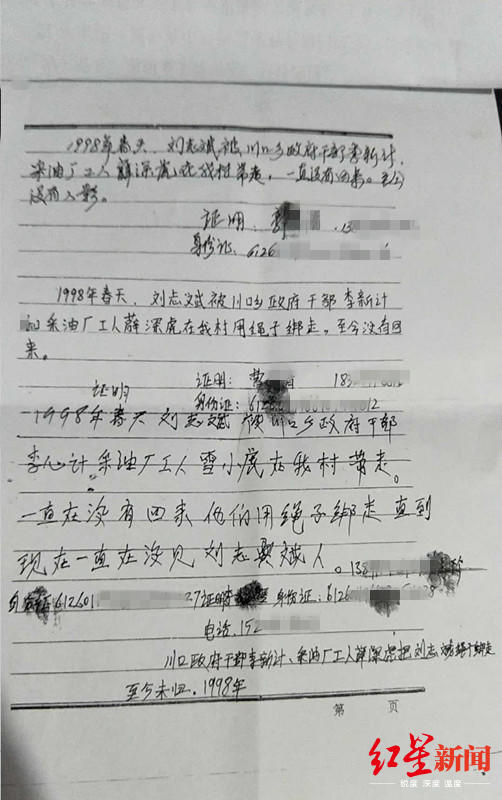 1998年春天、刘志斌被川口乡政府干部李新计、
采油厂工人薛深虎在我村带走，一直没有回来。至今
没有人影。
证明：郭 13
身份证：6126
1998年春天、刘志斌被川口乡政府干部李新计
和采油厂工人薛深虎在我村用绳子绑走，至今没有回
来。
证明：曹 18
证明
身份证：612 12
1998年春天刘志斌 川口乡政府干部
李心计采油厂工人雪小虎在我村带走。
一直在没有回来他们用绳子绑走直到
现在一直在没见刘志斌人。13
612601 27证明 身份证：6126 8
电话、152
川口政府干部李新计、采油厂工人薛深虎把刘志 绑走
至今未归、1998年
第 页
红星新闻
锐度 深度 温度